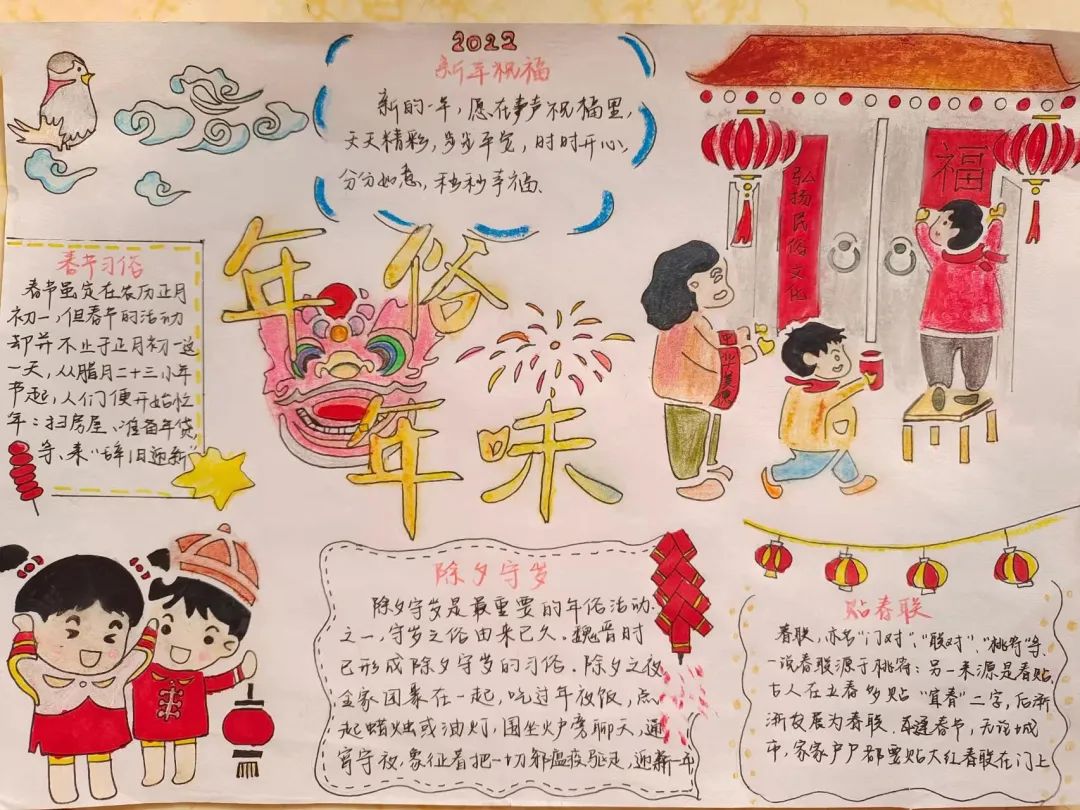 2022
新年祝福
新的一年，愿在声声祝福里，
天天精彩，步步平安，时时开心，
分分如意，秒秒幸福、
弘扬民俗文化
福
年俗
年味
中华美德
春节习俗
春节虽定在农历正月
初一，但春节的活动
却并不止于正月初一这
一天，从腊月二十三小年
节起，人们便开始忙
年：扫房屋、准备年货
等、来“辞旧迎新”
除夕守岁
除夕守岁是最重要的年俗活动
之一，守岁之俗由来已久．魏晋时
已形成除夕守岁的习俗．除夕之夜
全家团聚在一起，吃过年夜饭，点
起蜡烛或油灯，围坐炉旁聊天，通
宵守夜，象征着把一切邪瘟疫驱走，迎新一年
贴春联
春联，亦名“门对”、“联对”、“桃符”等、
一说春联源于桃符；另一来源是春贴、
古人在立春多贴“宜春”二字，后渐
渐发展为春联．每逢春节，无论城
市，家家户户都要贴大红春联在门上